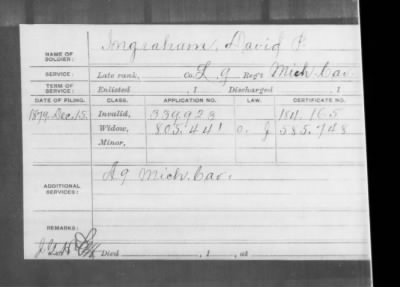 NAME OF SOLDIER: Ingraham, David P.
SERVICE: Late rank, Co. L, 9 Reg't Mich. Cav.
TERM OF SERVICE: Enlisted , 1 Discharged , 1
DATE OF FILING. CLASS. APPLICATION NO. LAW. CERTIFICATE NO.
1879, Dec. 15. Invalid, 339923 184.165
Widow, 805.441 585.748
Minor,
ADDITIONAL SERVICES: A 9 Mich. Cav.
REMARKS:
Died , 1 , at